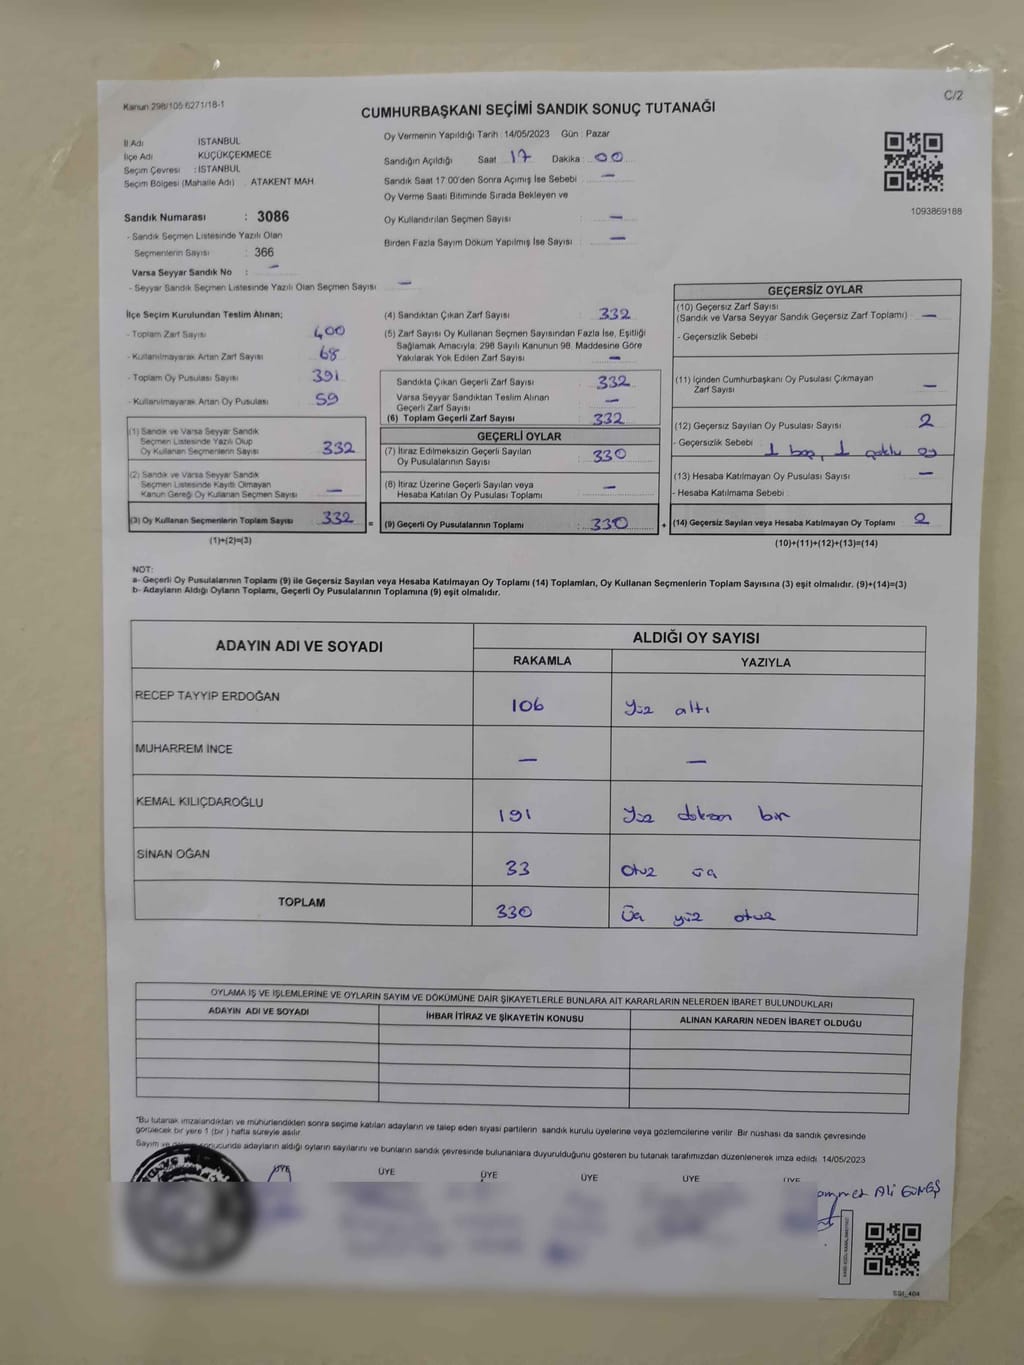 Kanun 298/105 6271/18-1
C/2
CUMHURBAŞKANI SEÇİMİ SANDIK SONUÇ TUTANAĞI
İl Adı İSTANBUL
İlçe Adı KÜÇÜKÇEKMECE
Seçim Çevresi : İSTANBUL
Seçim Bölgesi (Mahalle Adı) ATAKENT MAH.
Sandık Numarası : 3086
- Sandık Seçmen Listesinde Yazılı Olan
Seçmenlerin Sayısı : 366
Varsa Seyyar Sandık No : —
- Seyyar Sandık Seçmen Listesinde Yazılı Olan Seçmen Sayısı —
Oy Vermenin Yapıldığı Tarih : 14/05/2023 Gün : Pazar
Sandığın Açıldığı Saat 17 Dakika : 00
Sandık Saat 17:00'den Sonra Açımış İse Sebebi —
Oy Verme Saati Bitiminde Sırada Bekleyen ve
Oy Kullandırılan Seçmen Sayısı : —
Birden Fazla Sayım Döküm Yapılmış İse Sayısı : —
1093869188
İlçe Seçim Kurulundan Teslim Alınan;
- Toplam Zarf Sayısı 400
- Kullanılmayarak Artan Zarf Sayısı 68
- Toplam Oy Pusulası Sayısı 391
- Kullanılmayarak Artan Oy Pusulası 59
(1) Sandık ve Varsa Seyyar Sandık
Seçmen Listesinde Yazılı Olup
Oy Kullanan Seçmenlerin Sayısı 332
(2) Sandık ve Varsa Seyyar Sandık
Seçmen Listesinde Kayıtlı Olmayan
Kanun Gereği Oy Kullanan Seçmen Sayısı —
(3) Oy Kullanan Seçmenlerin Toplam Sayısı 332 =
(1)+(2)=(3)
(4) Sandıktan Çıkan Zarf Sayısı 332
(5) Zarf Sayısı Oy Kullanan Seçmen Sayısından Fazla İse, Eşitliği
Sağlamak Amacıyla; 298 Sayılı Kanunun 98. Maddesine Göre
Yakılarak Yok Edilen Zarf Sayısı —
Sandıkta Çıkan Geçerli Zarf Sayısı 332
Varsa Seyyar Sandıktan Teslim Alınan
Geçerli Zarf Sayısı —
(6) Toplam Geçerli Zarf Sayısı 332
GEÇERLİ OYLAR
(7) İtiraz Edilmeksizin Geçerli Sayılan
Oy Pusulalarının Sayısı : 330
(8) İtiraz Üzerine Geçerli Sayılan veya
Hesaba Katılan Oy Pusulası Toplamı —
(9) Geçerli Oy Pusulalarının Toplamı : 330 +
GEÇERSİZ OYLAR
(10) Geçersiz Zarf Sayısı
(Sandık ve Varsa Seyyar Sandık Geçersiz Zarf Toplamı) —
- Geçersizlik Sebebi
(11) İçinden Cumhurbaşkanı Oy Pusulası Çıkmayan
Zarf Sayısı —
(12) Geçersiz Sayılan Oy Pusulası Sayısı 2
- Geçersizlik Sebebi 1 boş, 1 çoklu oy
(13) Hesaba Katılmayan Oy Pusulası Sayısı —
- Hesaba Katılmama Sebebi
(14) Geçersiz Sayılan veya Hesaba Katılmayan Oy Toplamı 2
(10)+(11)+(12)+(13)=(14)
NOT:
a- Geçerli Oy Pusulalarının Toplamı (9) ile Geçersiz Sayılan veya Hesaba Katılmayan Oy Toplamı (14) Toplamları, Oy Kullanan Seçmenlerin Toplam Sayısına (3) eşit olmalıdır. (9)+(14)=(3)
b- Adayların Aldığı Oyların Toplamı, Geçerli Oy Pusulalarının Toplamına (9) eşit olmalıdır.
ADAYIN ADI VE SOYADI ALDIĞI OY SAYISI
RAKAMLA YAZIYLA
RECEP TAYYİP ERDOĞAN 106 yüz altı
MUHARREM İNCE — —
KEMAL KILIÇDAROĞLU 191 yüz doksan bir
SİNAN OĞAN 33 otuz üç
TOPLAM 330 üç yüz otuz
OYLAMA İŞ VE İŞLEMLERİNE VE OYLARIN SAYIM VE DÖKÜMÜNE DAİR ŞİKAYETLERLE BUNLARA AİT KARARLARIN NELERDEN İBARET BULUNDUKLARI
ADAYIN ADI VE SOYADI İHBAR İTİRAZ VE ŞİKAYETİN KONUSU ALINAN KARARIN NEDEN İBARET OLDUĞU
"Bu tutanak imzalandıktan ve mühürlendikten sonra seçime katılan adayların ve talep eden siyasi partilerin sandık kurulu üyelerine veya gözlemcilerine verilir. Bir nüshası da sandık çevresinde
görülecek bir yere 1 (bir) hafta süreyle asılır.
Sayım ve sonucunda adayların aldığı oyların sayılarını ve bunların sandık çevresinde bulunanlara duyurulduğunu gösteren bu tutanak tarafımızdan düzenlenerek imza edildi. 14/05/2023
ÜYE ÜYE ÜYE ÜYE ÜYE ÜYE
Ali GÜNEŞ
SSI_404